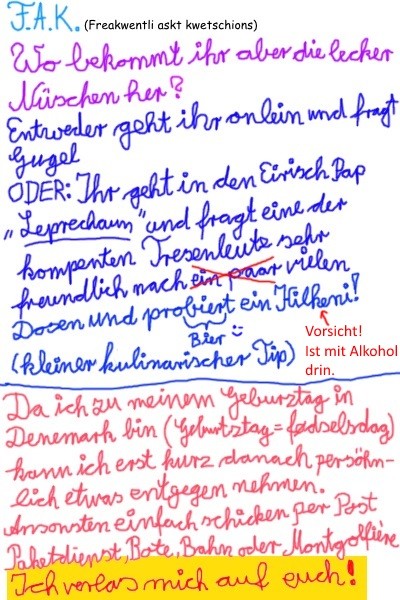 F.A.K. (Freakwentli askt kwetschions)
Wo bekommt ihr aber die lecker
Nüschen her?
Entweder geht ihr onlein und fragt
Gugel
ODER: Ihr geht in den Eirisch Pap
„Leprechaun" und fragt eine der
kompenten Tresenleute sehr
freundlich nach ein paar vielen
Dosen und probiert ein Kilkeni!
Bier
(kleiner kulinarischer Tip)
Vorsicht!
Ist mit Alkohol
drin.
Da ich zu meinem Geburztag in
Denemark bin (Geburtztag = fødselsdag)
kann ich erst kurz danach persöhn-
lich etwas entgegen nehmen.
Ansonsten einfach schicken per Post
Paketdienst, Bote, Bahn oder Montgolfière
Ich verlas mich auf euch!